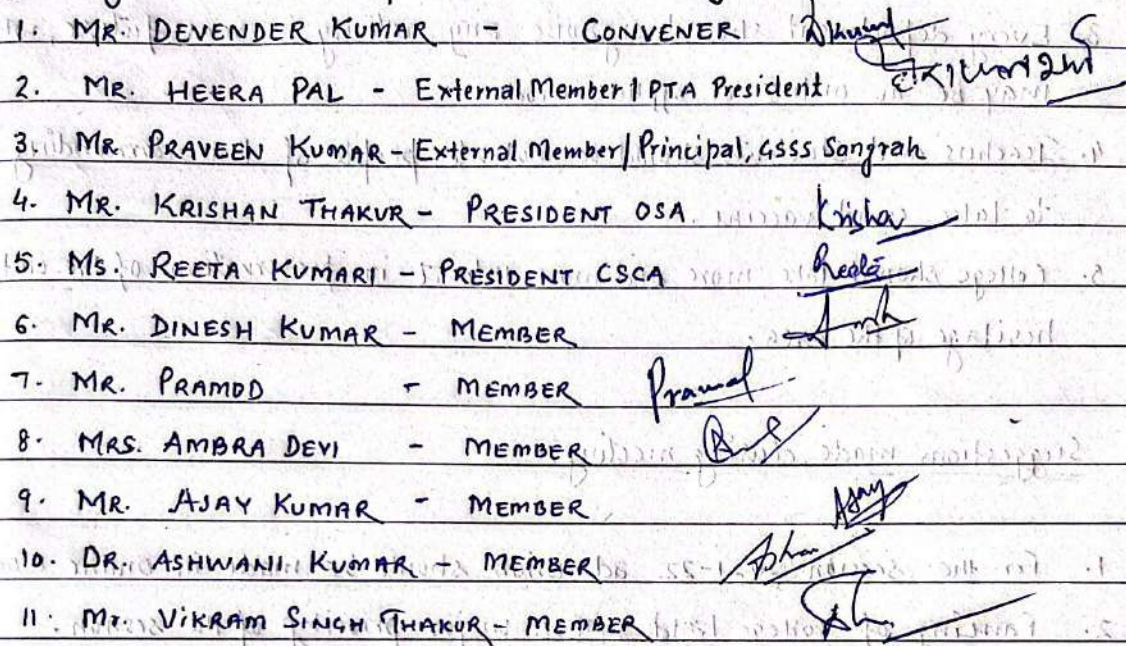 1. MR. DEVENDER KUMAR - CONVENER Dkumar
2. MR. HEERA PAL - External Member / PTA President
3. MR PRAVEEN KUMAR - External Member / Principal, GSSS Sangrah
4. MR. KRISHAN THAKUR - PRESIDENT OSA Krishan
5. MS. REETA KUMARI - PRESIDENT CSCA Reeta
6. MR. DINESH KUMAR - MEMBER
7. MR. PRAMOD - MEMBER Pramod
8. MRS. AMBRA DEVI - MEMBER
9. MR. AJAY KUMAR - MEMBER Ajay
10. DR. ASHWANI KUMAR - MEMBER
11. Mr. VIKRAM SINGH THAKUR - MEMBER